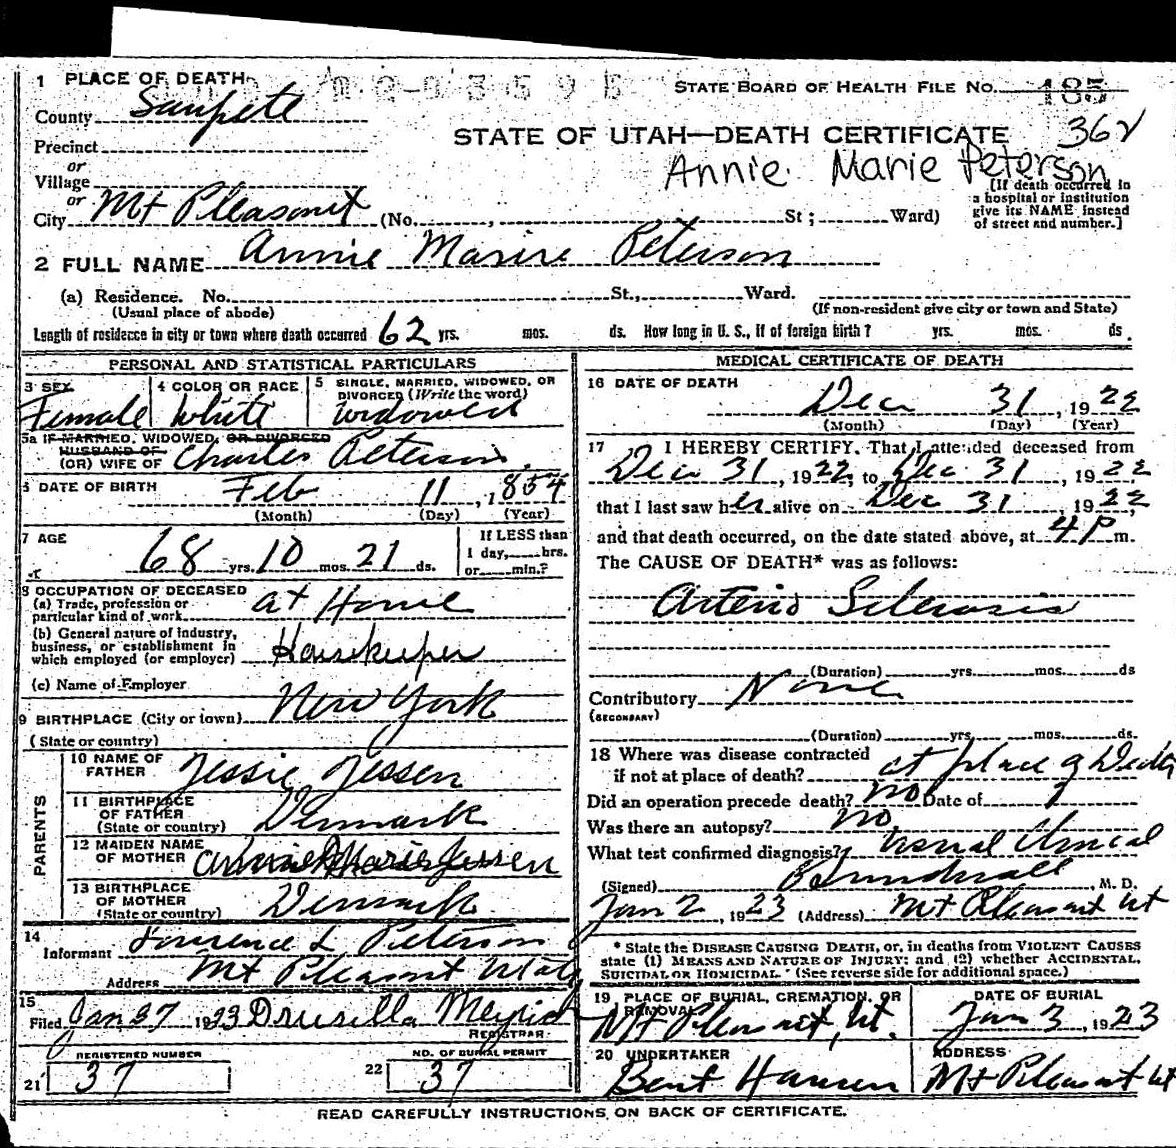 1 PLACE OF DEATH
STATE BOARD OF HEALTH FILE NO. 185
County Sanpete
362
STATE OF UTAH—DEATH CERTIFICATE
Precinct
Annie Marie Peterson
or
Village
or
City Mt Pleasant (No. , St ; Ward)
[If death occurred in
a hospital or institution
give its NAME instead
of street and number.]
2 FULL NAME Annie Marire Peterson
(a) Residence. No. St., Ward.
(Usual place of abode) (If non-resident give city or town and State)
Length of residence in city or town where death occurred 62 yrs. mos. ds. How long in U. S., if of foreign birth? yrs. mos. ds.
PERSONAL AND STATISTICAL PARTICULARS
3 SEX 4 COLOR OR RACE 5 SINGLE, MARRIED, WIDOWED, OR
DIVORCED (Write the word)
Female White widowed
5a IF MARRIED, WIDOWED, OR DIVORCED
HUSBAND OF
(OR) WIFE OF Charles Peterson.
6 DATE OF BIRTH Feb 11, 1854
(Month) (Day) (Year)
7 AGE If LESS than
68 yrs. 10 mos. 21 ds. 1 day, hrs.
or min.?
8 OCCUPATION OF DECEASED
(a) Trade, profession or
particular kind of work at Home
(b) General nature of industry,
business, or establishment in
which employed (or employer) Housekeeper
(c) Name of Employer
9 BIRTHPLACE (City or town) New York
(State or country)
PARENTS
10 NAME OF
FATHER Jessie Jessen
11 BIRTHPLACE
OF FATHER
(State or country) Denmark
12 MAIDEN NAME
OF MOTHER Marie Jessen
13 BIRTHPLACE
OF MOTHER
(State or country) Denmark
14
Informant Lawrence L Peterson
Address Mt Pleasant Utah
15
Filed Jan 27 1923 Drusilla
REGISTRAR
REGISTERED NUMBER NO. OF BURIAL PERMIT
21 37 22 37
MEDICAL CERTIFICATE OF DEATH
16 DATE OF DEATH
Dec 31, 1922
(Month) (Day) (Year)
17 I HEREBY CERTIFY. That I attended deceased from
Dec 31, 1922, to Dec 31, 1922
that I last saw her alive on Dec 31, 1922,
and that death occurred, on the date stated above, at 4 P m.
The CAUSE OF DEATH* was as follows:
Arterio Sclerosis
(Duration) yrs. mos. ds
Contributory None
(SECONDARY)
(Duration) yrs. mos. ds.
18 Where was disease contracted
if not at place of death? at place of Death
Did an operation precede death? no Date of
Was there an autopsy? no
What test confirmed diagnosis? usual Clinical
(Signed) , M. D.
Jan 2, 1923 (Address) Mt Pleasant Ut
* State the DISEASE CAUSING DEATH, or, in deaths from VIOLENT CAUSES
state (1) MEANS AND NATURE OF INJURY; and (2) whether ACCIDENTAL,
SUICIDAL OR HOMICIDAL. (See reverse side for additional space.)
19 PLACE OF BURIAL, CREMATION, OR
REMOVAL DATE OF BURIAL
Mt Pleasant, Ut. Jan 3, 1923
20 UNDERTAKER ADDRESS
Bent Hansen Mt Pleasant Ut
READ CAREFULLY INSTRUCTIONS ON BACK OF CERTIFICATE.